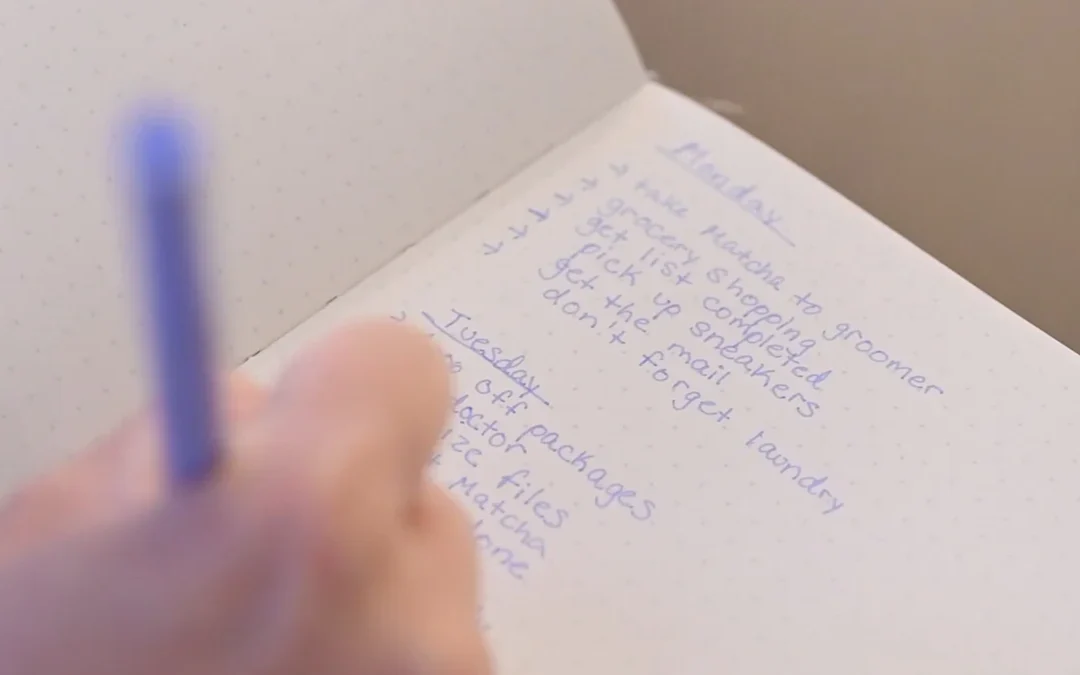 Monday
→ take Matcha to groomer
→ grocery shopping
→ get list completed
→ pick up sneakers
→ get the mail
→ don't forget laundry
Tuesday
off packages
doctor
files
Matcha